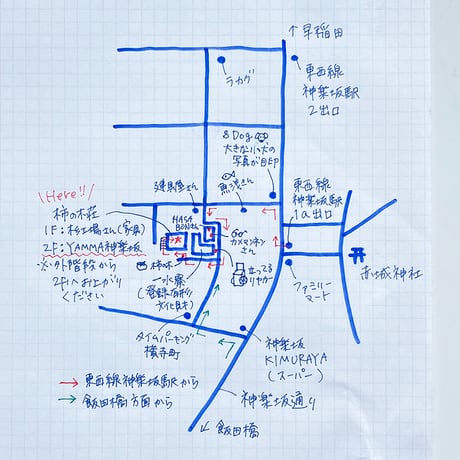 ↑早稲田
東西線
神楽坂駅
2出口
ラカグ
8Dog
大きな小犬の
写真が目印
東西線
神楽坂駅
1a出口
魚浅さん
Here!!
柿の木荘
2F:YAMMA神楽坂
※外階段から
2Fへお上がり
ください
カメマンネンさん
一水寮
(登録有形
文化財)
まわってる
リヤカー
赤城神社
ファミリー
マート
タイムパーキング
横寺町
神楽坂
KIMURAYA
(スーパー)
→東西線神楽坂駅から
→飯田橋方面から
神楽坂通り
↙飯田橋